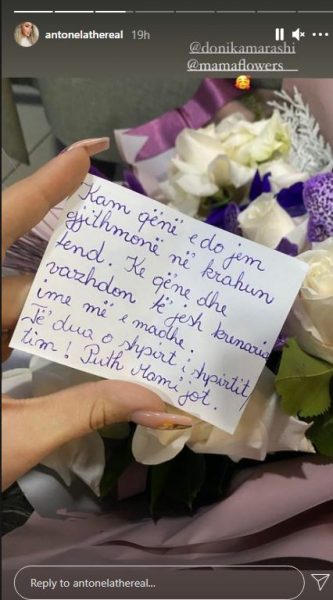 antonelathereal 19h
@donikamarashi
@mamaflowers
Kam qënë e do jem
gjithmonë në krahun
tend. Ke qëne dhe
vazhdon të jesh krenaria
ime më e madhe.
Të dua o shpirt i shpirtit
tim! Puth Mami jot.
Reply to antonelathereal...